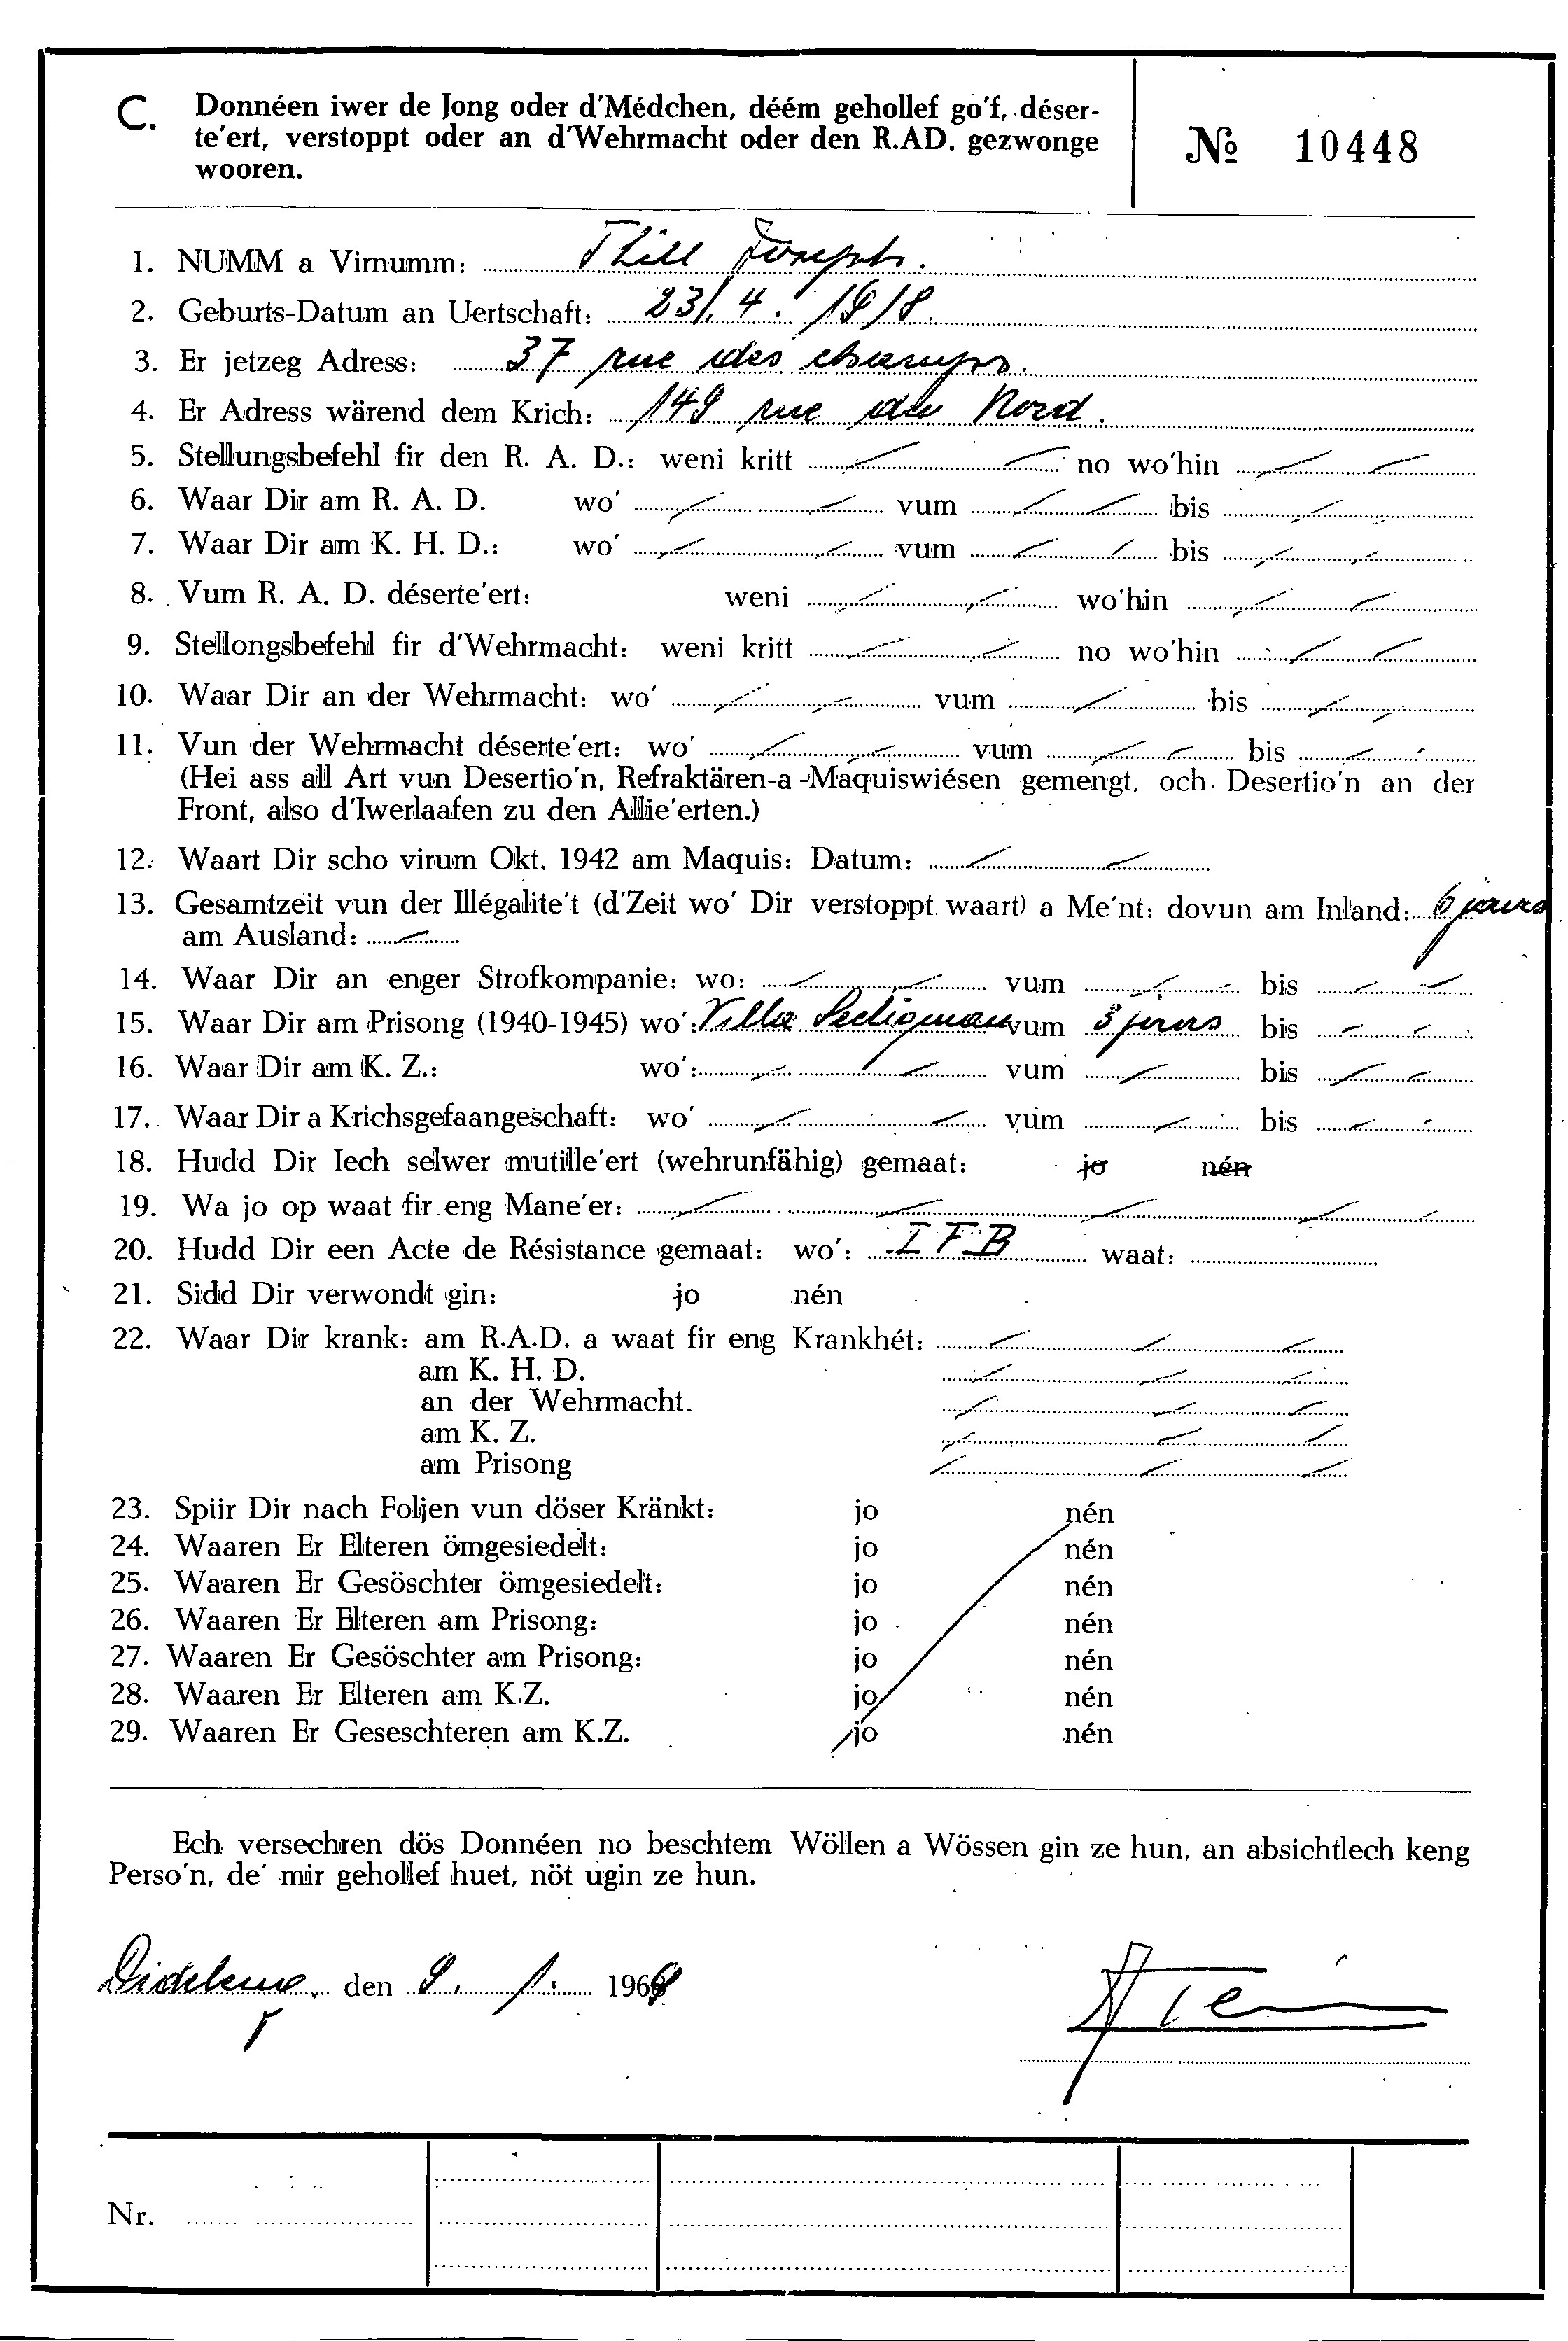 C. Donnéen iwer de Jong oder d'Médchen, déém gehollef go'f, déser-
te'ert, verstoppt oder an d'Wehrmacht oder den R.AD. gezwonge
wooren.
№ 10448
1. NUMM a Virnumm: Thill Joseph.
2. Geburts-Datum an Uertschaft: 23/. 4. 1918.
3. Er jetzeg Adress: 37 rue des champs.
4. Er Adress wärend dem Krich: 149 rue du Nord.
5. Stellungsbefehl fir den R. A. D.: weni kritt no wo'hin
6. Waar Dir am R. A. D. wo' vum bis
7. Waar Dir am K. H. D.: wo' vum bis
8. Vum R. A. D. déserte'ert: weni wo'hin
9. Stellongsbefehl fir d'Wehrmacht: weni kritt no wo'hin
10. Waar Dir an der Wehrmacht: wo' vum bis
11. Vun der Wehrmacht déserte'ert: wo' vum bis
(Hei ass all Art vun Desertio'n, Refraktären-a -Maquiswiésen gemengt, och Desertio'n an der
Front, also d'Iwerlaafen zu den Allie'erten.)
12. Waart Dir scho virum Okt. 1942 am Maquis: Datum:
13. Gesamtzeit vun der Illégalite't (d'Zeit wo' Dir verstoppt waart) a Me'nt: dovun am Inland: 6 jours
am Ausland:
14. Waar Dir an enger Strofkompanie: wo: vum bis
15. Waar Dir am Prisong (1940-1945) wo': Villa Seeligman vum 3 jours bis
16. Waar Dir am K. Z.: wo': vum bis
17. Waar Dir a Krichsgefaangeschaft: wo' vum bis
18. Hudd Dir Iech selwer mutille'ert (wehrunfähig) gemaat: jo nén
19. Wa jo op waat fir eng Mane'er:
20. Hudd Dir een Acte de Résistance gemaat: wo': I F B waat:
21. Sidd Dir verwondt gin: jo nén
22. Waar Dir krank: am R.A.D. a waat fir eng Krankhét:
am K. H. D.
an der Wehrmacht.
am K. Z.
am Prisong
23. Spiir Dir nach Foljen vun döser Kränkt: jo nén
24. Waaren Er Elteren ömgesiedelt: jo nén
25. Waaren Er Gesöschter ömgesiedelt: jo nén
26. Waaren Er Elteren am Prisong: jo nén
27. Waaren Er Gesöschter am Prisong: jo nén
28. Waaren Er Elteren am K.Z. jo nén
29. Waaren Er Geseschteren am K.Z. jo nén
Ech versechren dös Donnéen no beschtem Wöllen a Wössen gin ze hun, an absichtlech keng
Perso'n, de' mir gehollef huet, nöt ugin ze hun.
den 9. 1. 196
Nr.